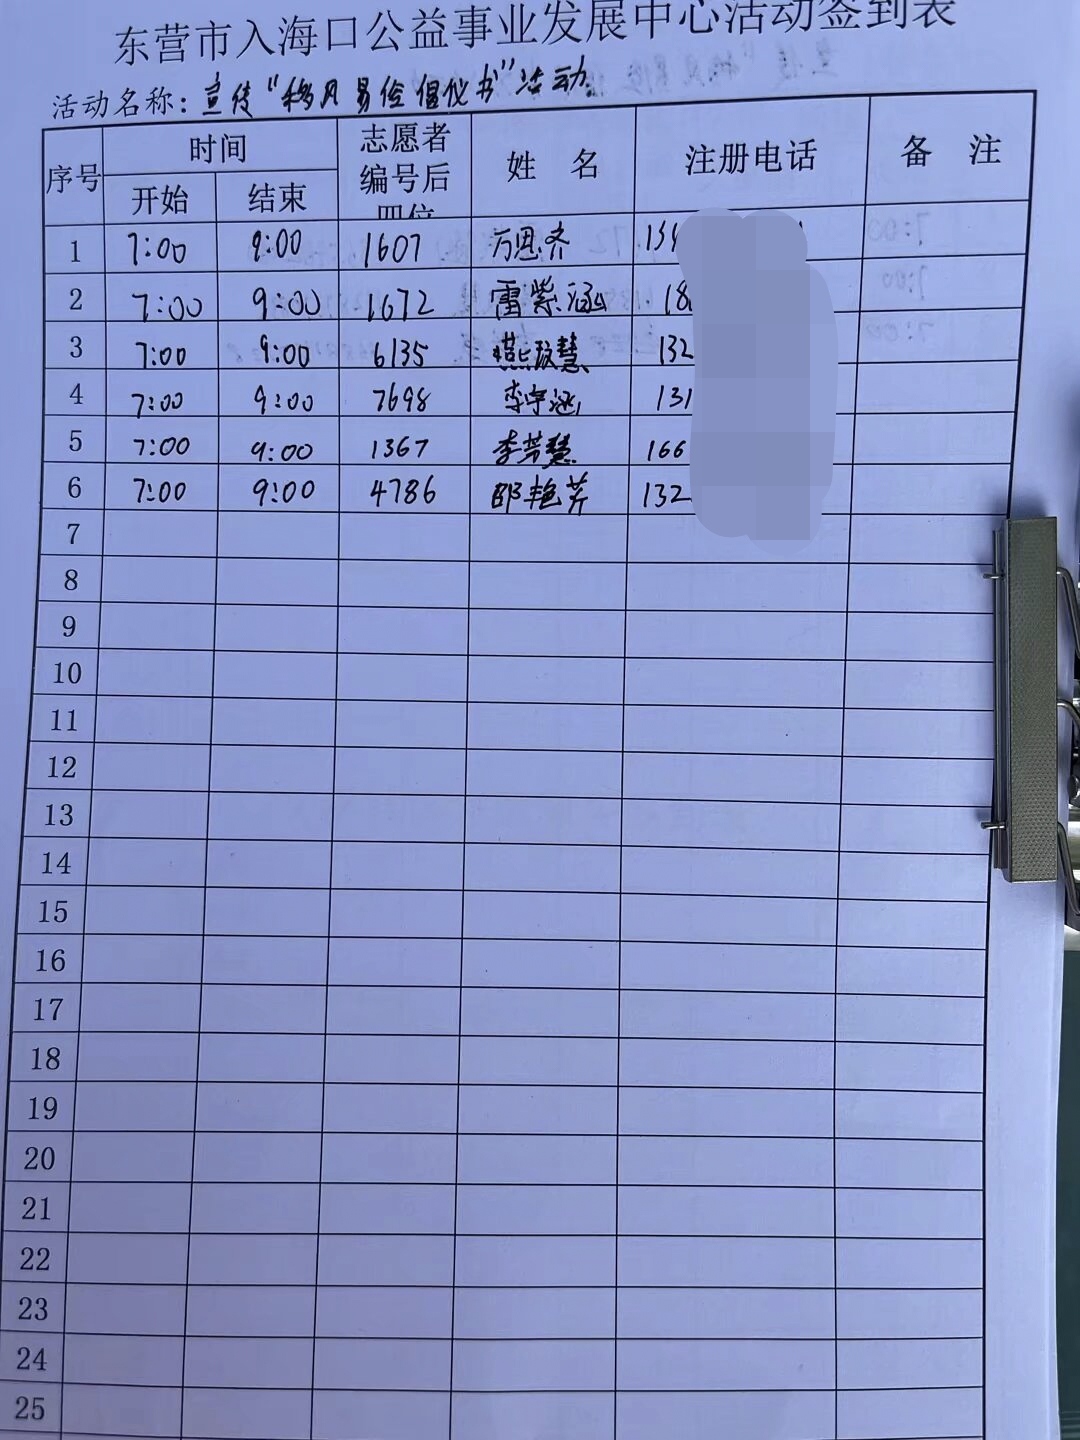 东营市入海口公益事业发展中心活动签到表
活动名称：宣传“移风易俗倡仪书”活动
序号 时间 开始 结束 志愿者编号后四位 姓名 注册电话 备注
1 7:00 9:00 1607 万思齐
2 7:00 9:00 1672 雷紫涵 18
3 7:00 9:00 6135 燕玟慧 132
4 7:00 9:00 7698 李宇涵 131
5 7:00 9:00 1367 李芳慧 166
6 7:00 9:00 4786 邵艳芹 132
7
8
9
10
11
12
13
14
15
16
17
18
19
20
21
22
23
24
25